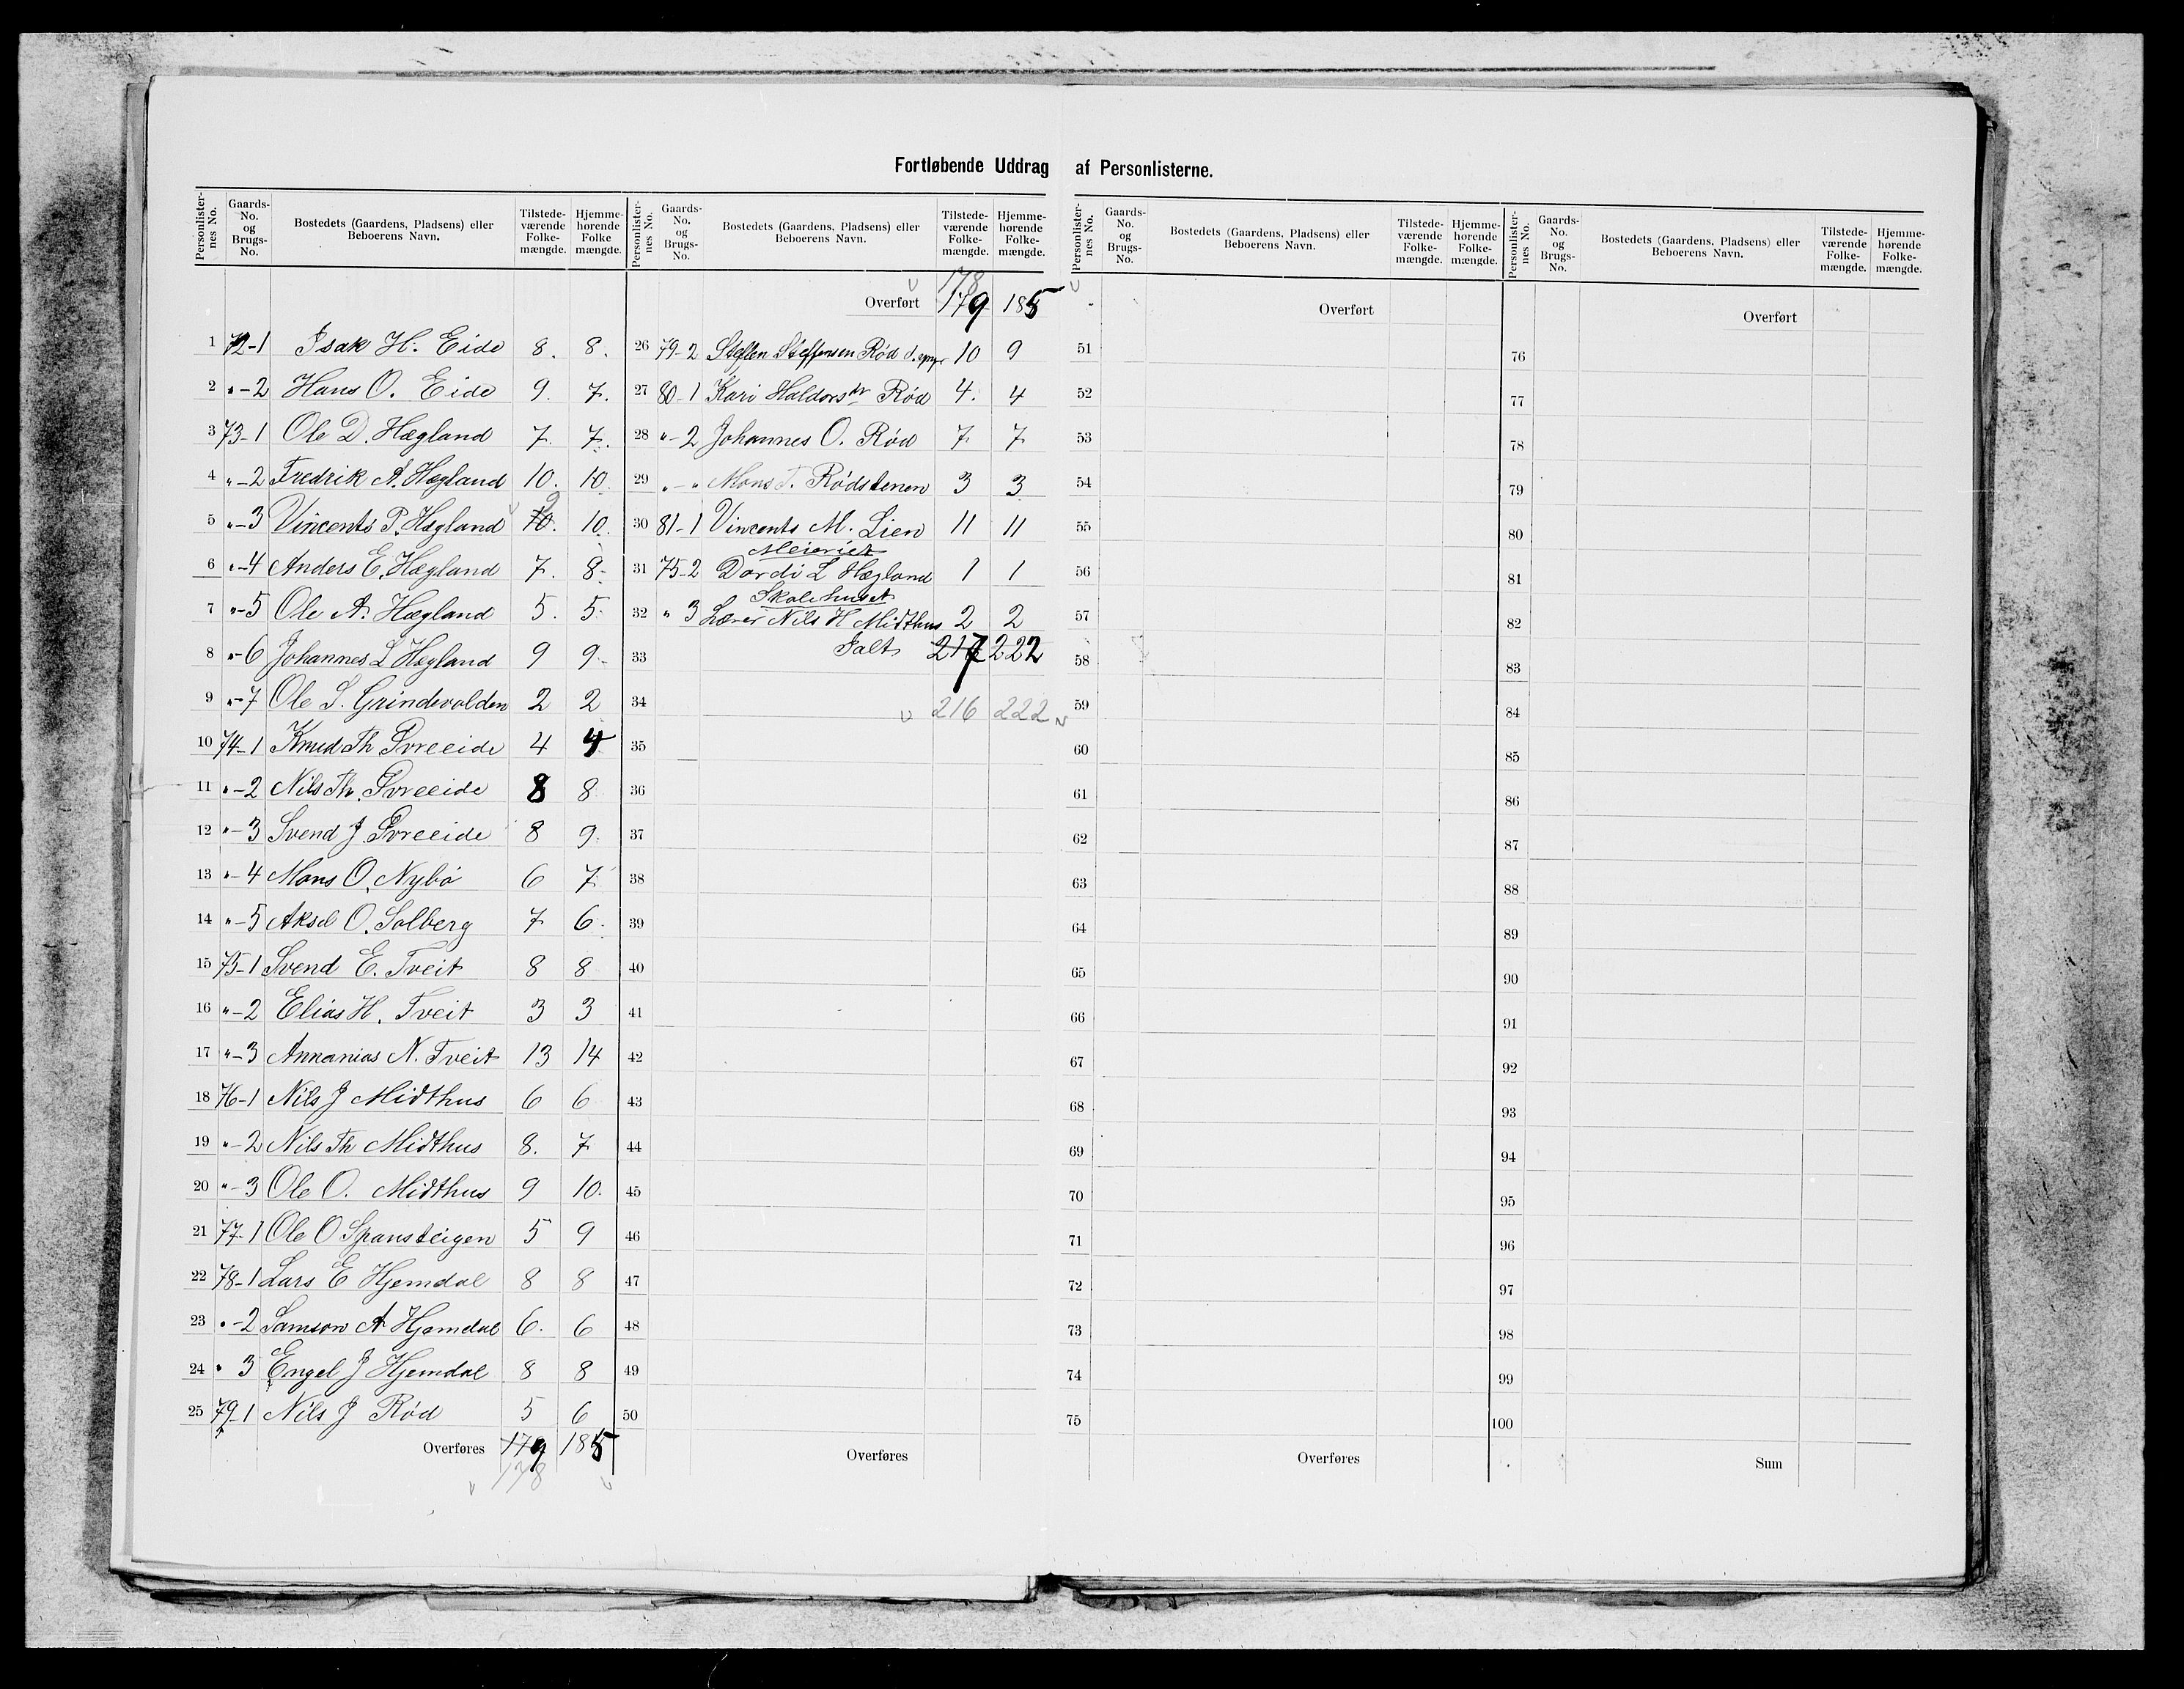 Fortløbende Uddrag af Personlisterne.
Personlister-nes No. Gaards-No. og Brugs-No. Bostedets (Gaardens, Pladsens) eller Beboerens Navn. Tilstede-værende Folke-mængde. Hjemme-hørende Folke mængde.
1 72-1 Isak H. Eide 8. 8.
2 "-2 Hans O. Eide 9. 7.
3 73-1 Ole D. Hægland 7. 7.
4 "-2 Fredrik A. Hægland 10. 10.
5 "-3 Vincents P. Hægland 10. 9 10.
6 "-4 Anders E. Hægland 7. 8-
7 "-5 Ole A. Hægland 5. 5.
8 "-6 Johannes L Hægland 9 9-
9 "-7 Ole S. Grindevolden 2 2
10 74-1 Knud Th Svreeide 4 4
11 "-2 Nils Th. Svreeide 8 8
12 "-3 Svend J Svreeide 8 9.
13 "-4 Mons O. Nybø 6 7
14 "-5 Aksel O. Solberg 7 6.
15 75-1 Svend E. Tveit 8 8
16 "-2 Elias H. Tveit 3 3
17 "-3 Annanias N. Tveit 13 14
18 76-1 Nils J Midthus 6 6
19 "-2 Nils Th Midthus 8. 7
20 "-3 Ole O. Midthus 9 10.
21 77-1 Ole O Spansteigen 5 9
22 78-1 Lars E Hjemdal 8 8
23 "-2 Samson A Hjemdal 6. 6
24 " 3 Engel J Hjemdal 8 8
25 79-1 Nils J Rød 5 6
Overføres 179 185
178
Personlister-nes No. Gaards-No. og Brugs-No. Bostedets (Gaardens, Pladsens) eller Beboerens Navn. Tilstede-værende Folke-mængde. Hjemme-hørende Folke-mængde.
178
Overført 179 185
26 79-2 Steffen Steffensen Rød 10 9
27 80-1 Kari Haldorsdr Rød 4. 4
28 "-2 Johannes O. Rød 7 7
29 "-" Mons T. Rødstenen 3 3
30 81-1 Vincents M. Lien 11 11
Meieriet
31 75-2 Dordi L Hægland 1 1
Skolehuset
32 " 3 Lærer Nils H Midthus 2 2
33 Ialt 217 222
34 216 222
35
36
37
38
39
40
41
42
43
44
45
46
47
48
49
50
Overføres
Personlister-nes No. Gaards-No. og Brugs-No. Bostedets (Gaardens, Pladsens) eller Beboerens Navn. Tilstede-værende Folke-mængde. Hjemme-hørende Folke-mængde.
Overført
51
52
53
54
55
56
57
58
59
60
61
62
63
64
65
66
67
68
69
70
71
72
73
74
75
Overføres
Personlister-nes No. Gaards-No. og Brugs-No. Bostedets (Gaardens, Pladsens) eller Beboerens Navn. Tilstede-værende Folke-mængde. Hjemme-hørende Folke-mængde.
Overført
76
77
78
79
80
81
82
83
84
85
86
87
88
89
90
91
92
93
94
95
96
97
98
99
100
Sum